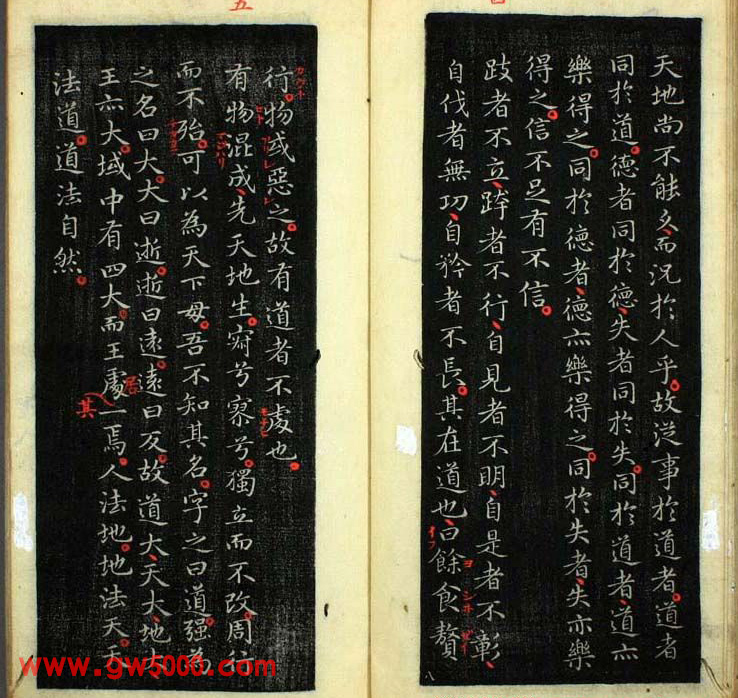 天地尚不能久、而況於人乎。故從事於道者。道者
同於道。德者同於德、失者同於失。同於道者、道亦
樂得之。同於德者、德亦樂得之。同於失者、失亦樂
得之。信不足有不信。
跂者不立、跨者不行、自見者不明、自是者不彰、
自伐者無功、自矜者不長。其在道也、曰餘食贅
五
行。物或惡之。故有道者不處也。
有物混成、先天地生。寂兮寥兮。獨立而不改。周行
而不殆。可以為天下母。吾不知其名。字之曰道。强為
之名曰大。大曰逝。逝曰遠。遠曰反。故道大、天大、地大
王亦大。域中有四大。而王處一焉。人法地。地法天。天
居
其
法道。道法自然。
www.gw5000.com